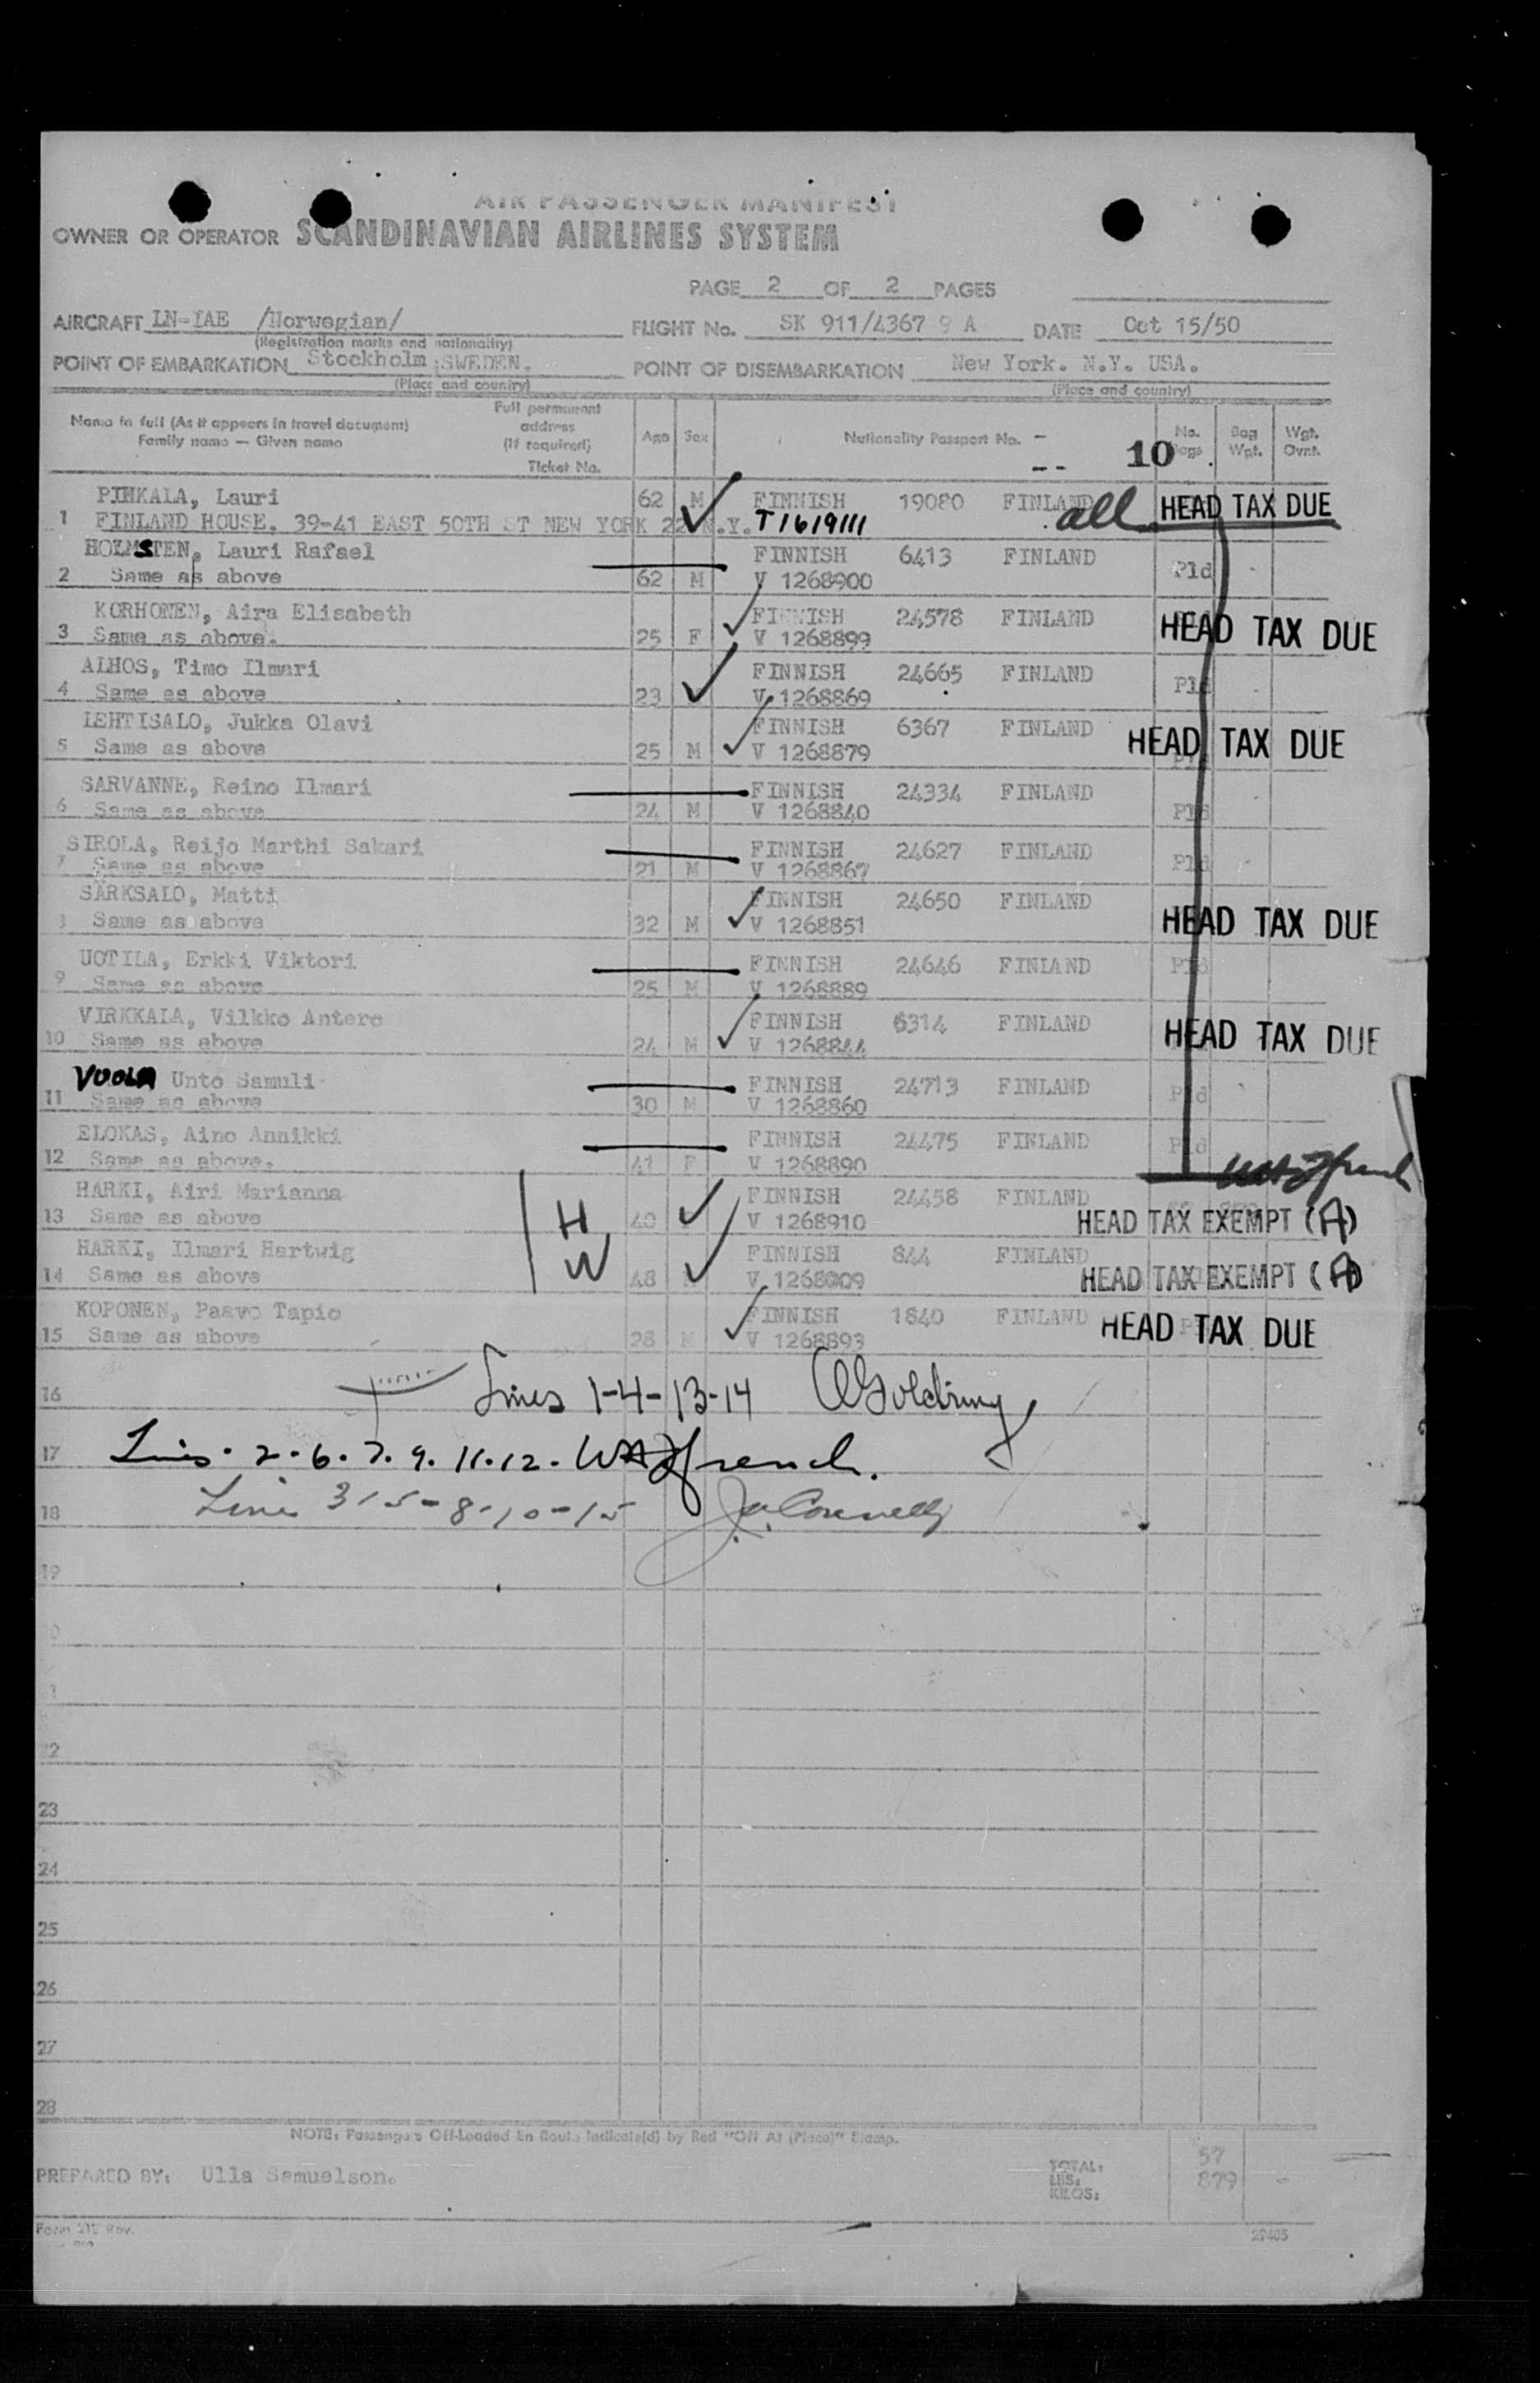 AIR PASSENGER MANIFEST
OWNER OR OPERATOR SCANDINAVIAN AIRLINES SYSTEM
PAGE 2 OF 2 PAGES
AIRCRAFT LN-IAE /Norwegian/ FLIGHT No. SK 911/4367 9 A DATE Oct 15/50
(Registration marks and nationality)
POINT OF EMBARKATION Stockholm SWEDEN. POINT OF DISEMBARKATION New York. N.Y. USA.
(Place and country) (Place and country)
Name in full (As it appears in travel document) Family name — Given name Full permanent address (If required) Ticket No. Age Sex Nationality Passport No. - -- 10 No. Bags Bag Wgt. Wgt. Ovnt.
PIHKALA, Lauri 62 M FINNISH 19080 FINLAND all HEAD TAX DUE
1 FINLAND HOUSE. 39-41 EAST 50TH ST NEW YORK 22 N.Y. T1619111
HOLMSTEN, Lauri Rafael FINNISH 6413 FINLAND
2 Same as above 62 M V 1268900 Pld -
KORHONEN, Aira Elisabeth FINNISH 24578 FINLAND HEAD TAX DUE
3 Same as above. 25 F V 1268899
ALHOS, Timo Ilmari FINNISH 24665 FINLAND
4 Same as above 23 V 1268869 Pld -
LEHTISALO, Jukka Olavi FINNISH 6367 FINLAND HEAD TAX DUE
5 Same as above 25 M V 1268879
SARVANNE, Reino Ilmari FINNISH 24334 FINLAND
6 Same as above 24 M V 1268840 Pld -
SIROLA, Reijo Marthi Sakari FINNISH 24627 FINLAND
7 Same as above 21 M V 1268867 Pld -
SÄRKSALO, Matti FINNISH 24650 FINLAND
8 Same as above 32 M V 1268851 HEAD TAX DUE
UOTILA, Erkki Viktori FINNISH 24646 FINLAND Pld
9 Same as above 25 M V 1268889
VIRKKALA, Vilkko Antero FINNISH 6314 FINLAND HEAD TAX DUE
10 Same as above 24 M V 1268844
VUOLA Unto Samuli FINNISH 24713 FINLAND
11 Same as above 30 M V 1268860 Pld
ELOKAS, Aino Annikki FINNISH 24475 FINLAND Pld
12 Same as above. 41 F V 1268890
HARKI, Airi Marianna FINNISH 24458 FINLAND
13 Same as above H 40 V 1268910 HEAD TAX EXEMPT (A)
HARKI, Ilmari Hartwig W FINNISH 844 FINLAND
14 Same as above 48 V 1268909 HEAD TAX EXEMPT (A)
KOPONEN, Paavo Tapio FINNISH 1840 FINLAND HEAD TAX DUE
15 Same as above 28 M V 1268893
16 Lines 1-4-13-14
17 Lines. 2. 6. 7. 9. 11. 12. French.
18 Lines 3-5-8-10-15
19
22
23
24
25
26
27
28
NOTE: Passengers Off-Loaded En Route Indicate(d) by Red "Off At (Place)" Stamp.
PREPARED BY: Ulla Samuelson. TOTAL: 57
LBS: 879 -
KILOS:
Form 212 Rev. 29405